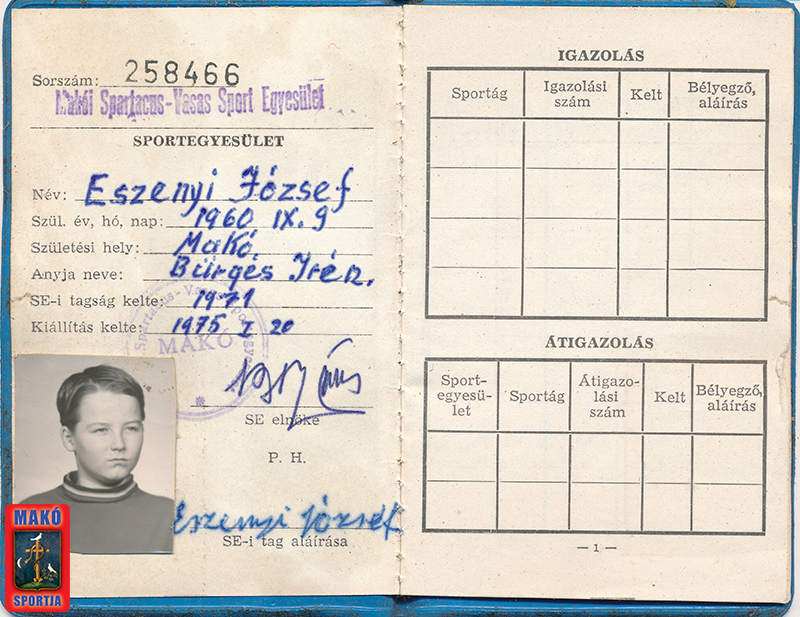 Sorszám: 258466
Makói Spartacus-Vasas Sport Egyesület
SPORTEGYESÜLET
Név: Eszenyi József
Szül. év, hó, nap: 1960 IX. 9
Születési hely: Makó
Anyja neve: Bürgés Irén.
SE-i tagság kelte: 1971
Kiállítás kelte: 1975 I 20
Spartacus-Vasas Sport Egye
MAKÓ
SE elnöke
P. H.
Eszenyi József
SE-i tag aláírása
MAKÓ
SPORTJA
IGAZOLÁS
Sportág Igazolási szám Kelt Bélyegző, aláírás
ÁTIGAZOLÁS
Sport-egyesü-let Sportág Átigazo-lási szám Kelt Bélyegző, aláírás
— 1 —